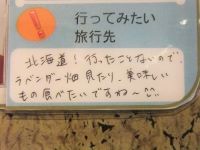 行ってみたい
旅行先
北海道!行ったことないので、
ラベンダー畑見たり、美味しい
もの食べたいですね〜^^